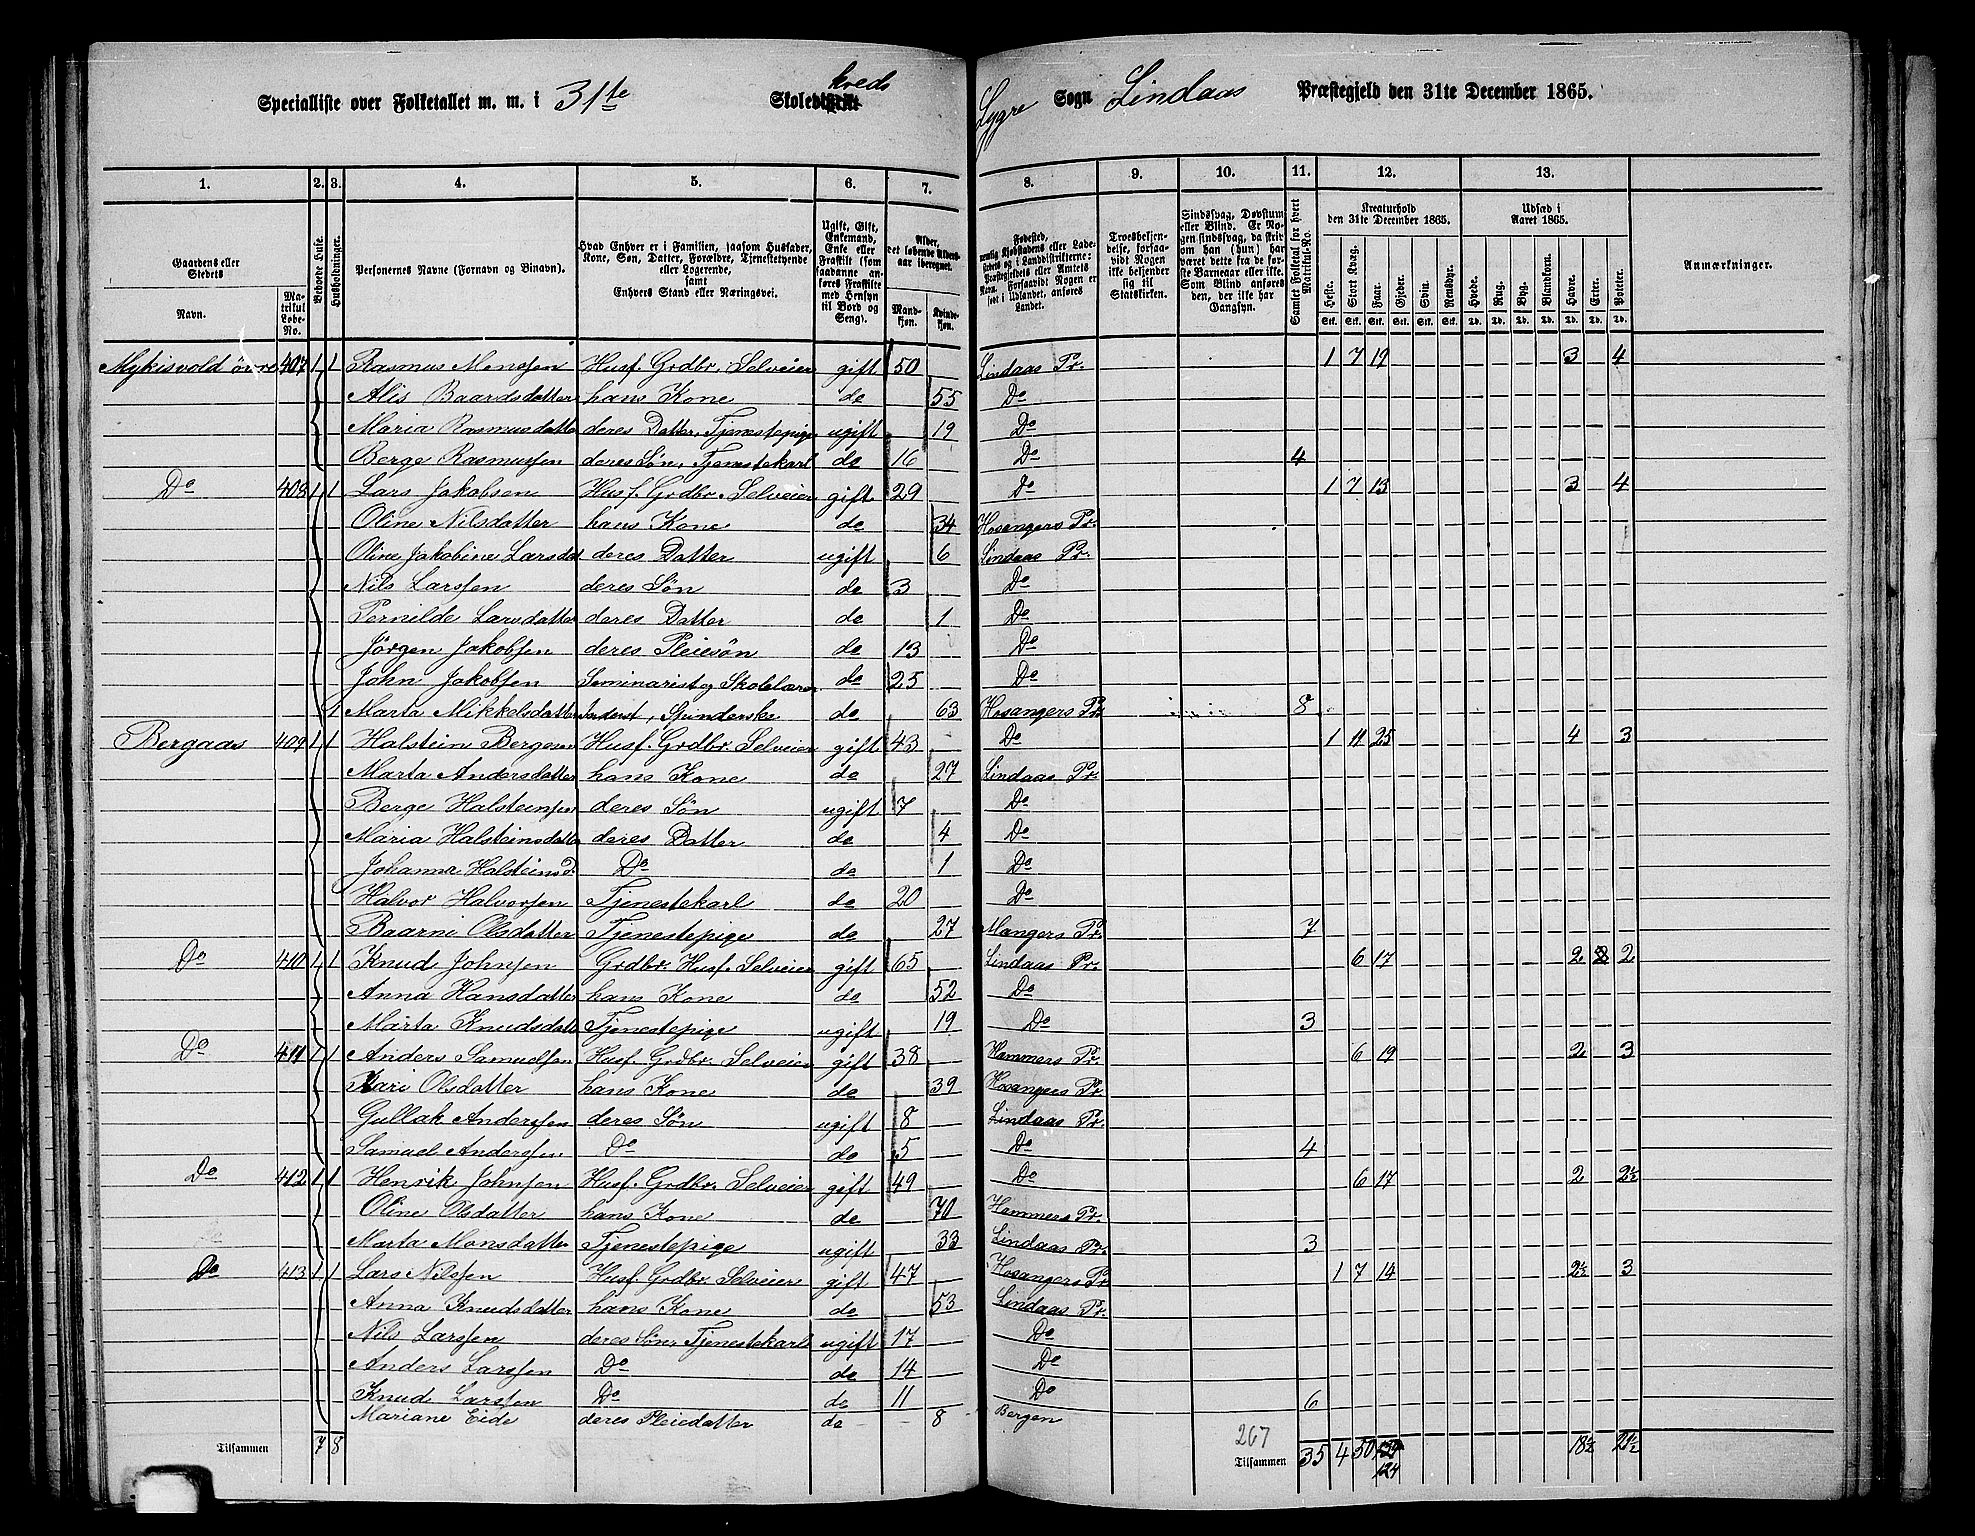 Specialliste over Folketallet m. m. i 31te Skoledistrikt kreds Lygre Sogn Lindaas Præstegjeld den 31te December 1865.
1. 2. 3. 4. 5. 6. 7. 8. 9. 10. 11. 12. 13.
Gaardens eller Stedets Navn. Matrikul Løbe-No. Beboede Huse. Husholdninger. Personernes Navne (Fornavn og Binavn). Hvad Enhver er i Familien, saasom Husfader, Kone, Søn, Datter, Forældre, Tjenestetyende eller Logerende, samt Enhvers Stand eller Næringsvei. Ugift, Gift, Enkemand, Enke eller Fraskilt (som saadanne anføres Fraskilte med Hensyn til Bord og Seng). Alder, det løbende Alders-aar iberegnet. Mandkjøn. Kvindekjøn. Fødested, Troesbekjendelse, forsaavidt Nogen ikke bekjender sig til Statskirken. Samlet Folketal for hvert Matrikul-No. Kreaturhold den 31te December 1865. Heste. Stort Kvæg. Faar. Gjeder. Svin. Rensdyr. Udsæd i Aaret 1865. Hvede. Rug. Byg. Blandkorn. Havre. Erter. Poteter. Anmærkninger.
Mykisvold øvre 407 1 1 Rasmus Monssen Husf. Grdbr. Selveier gift 50 Lindaas Pr. 1 7 19 3 4
Alis Baardsdatter hans Kone do 55 Do
Maria Rasmusdatter deres Datter, Tjenestepige ugift 19 Do
Berge Rasmussen deres Søn, Tjenestekarl do 16 Do 4
Do 408 1 1 Lars Jakobsen Husf. Grdbr. Selveier gift 29 Do 1 7 13 3 4
Oline Nilsdatter hans Kone do 34 Hosangers Pr.
Oline Jakobine Larsdat deres Datter ugift 6 Lindaas Pr.
Nils Larssen deres Søn do 3 Do
Pernilde Larsdatter deres Datter do 1 Do
Jørgen Jakobsen deres Pleiesøn do 13 Do
John Jakobsen Seminarist og Skolelærer do 25 Do
1 Marta Mikkelsdatter Inderst, Spinderske do 63 Hosangers Pr 8
Bergaas 409 1 1 Halstein Bergesen Husf. Grdbr. Selveier gift 43 Do 1 11 25 4 3
Marta Andersdatter hans Kone do 27 Lindaas Pr.
Berge Halsteinsen deres Søn ugift 7 Do
Maria Halsteinsdatter deres Datter do 4 Do
Johanna Halsteinsd. Do do 1 Do
Halvor Halvorsen Tjenestekarl do 20 Do
Baarni Olsdatter Tjenestepige do 27 Mangers Pr. 7
Do 410 1 1 Knud Johnsen Grdbr. Husf. Selveier gift 65 Lindaas Pr. 6 17 2 2
Anna Hansdatter hans Kone do 52 Do
Marta Knudsdatt Tjenestepige ugift 19 Do 3
Do 411 1 1 Anders Samuelsen Husf. Grdbr. Selveier gift 38 Hammers Pr. 6 19 2 3
Kari Olsdatter hans Kone do 39 Hosangers Pr.
Gullak Anderssen deres Søn ugift 8 Lindaas Pr.
Samuel Anderssen Do do 5 Do 4
Do 412 1 1 Henrik Johnsen Husf. Grdbr. Selveier gift 49 Do 6 17 2 2½
Oline Olsdatter hans Kone do 70 Hammers Pr.
Marta Monsdatter Tjenestepige ugift 33 Lindaas Pr. 3
Do 413 1 1 Lars Nilssen Husf. Grdbr. Selveier gift 47 Hosangers Pr 1 7 14 2½ 3
Anna Knudsdatter hans Kone do 53 Lindaas Pr.
Nils Larssen deres Søn, Tjenestekarl ugift 17 Do
Anders Larssen Do do 14 Do
Knud Larssen Do do 11 Do 6
Mariane Eide deres Pleiedatter do 8 Bergen
Tilsammen 7 8 267 Tilsammen 35 4 50 124 18½ 21½